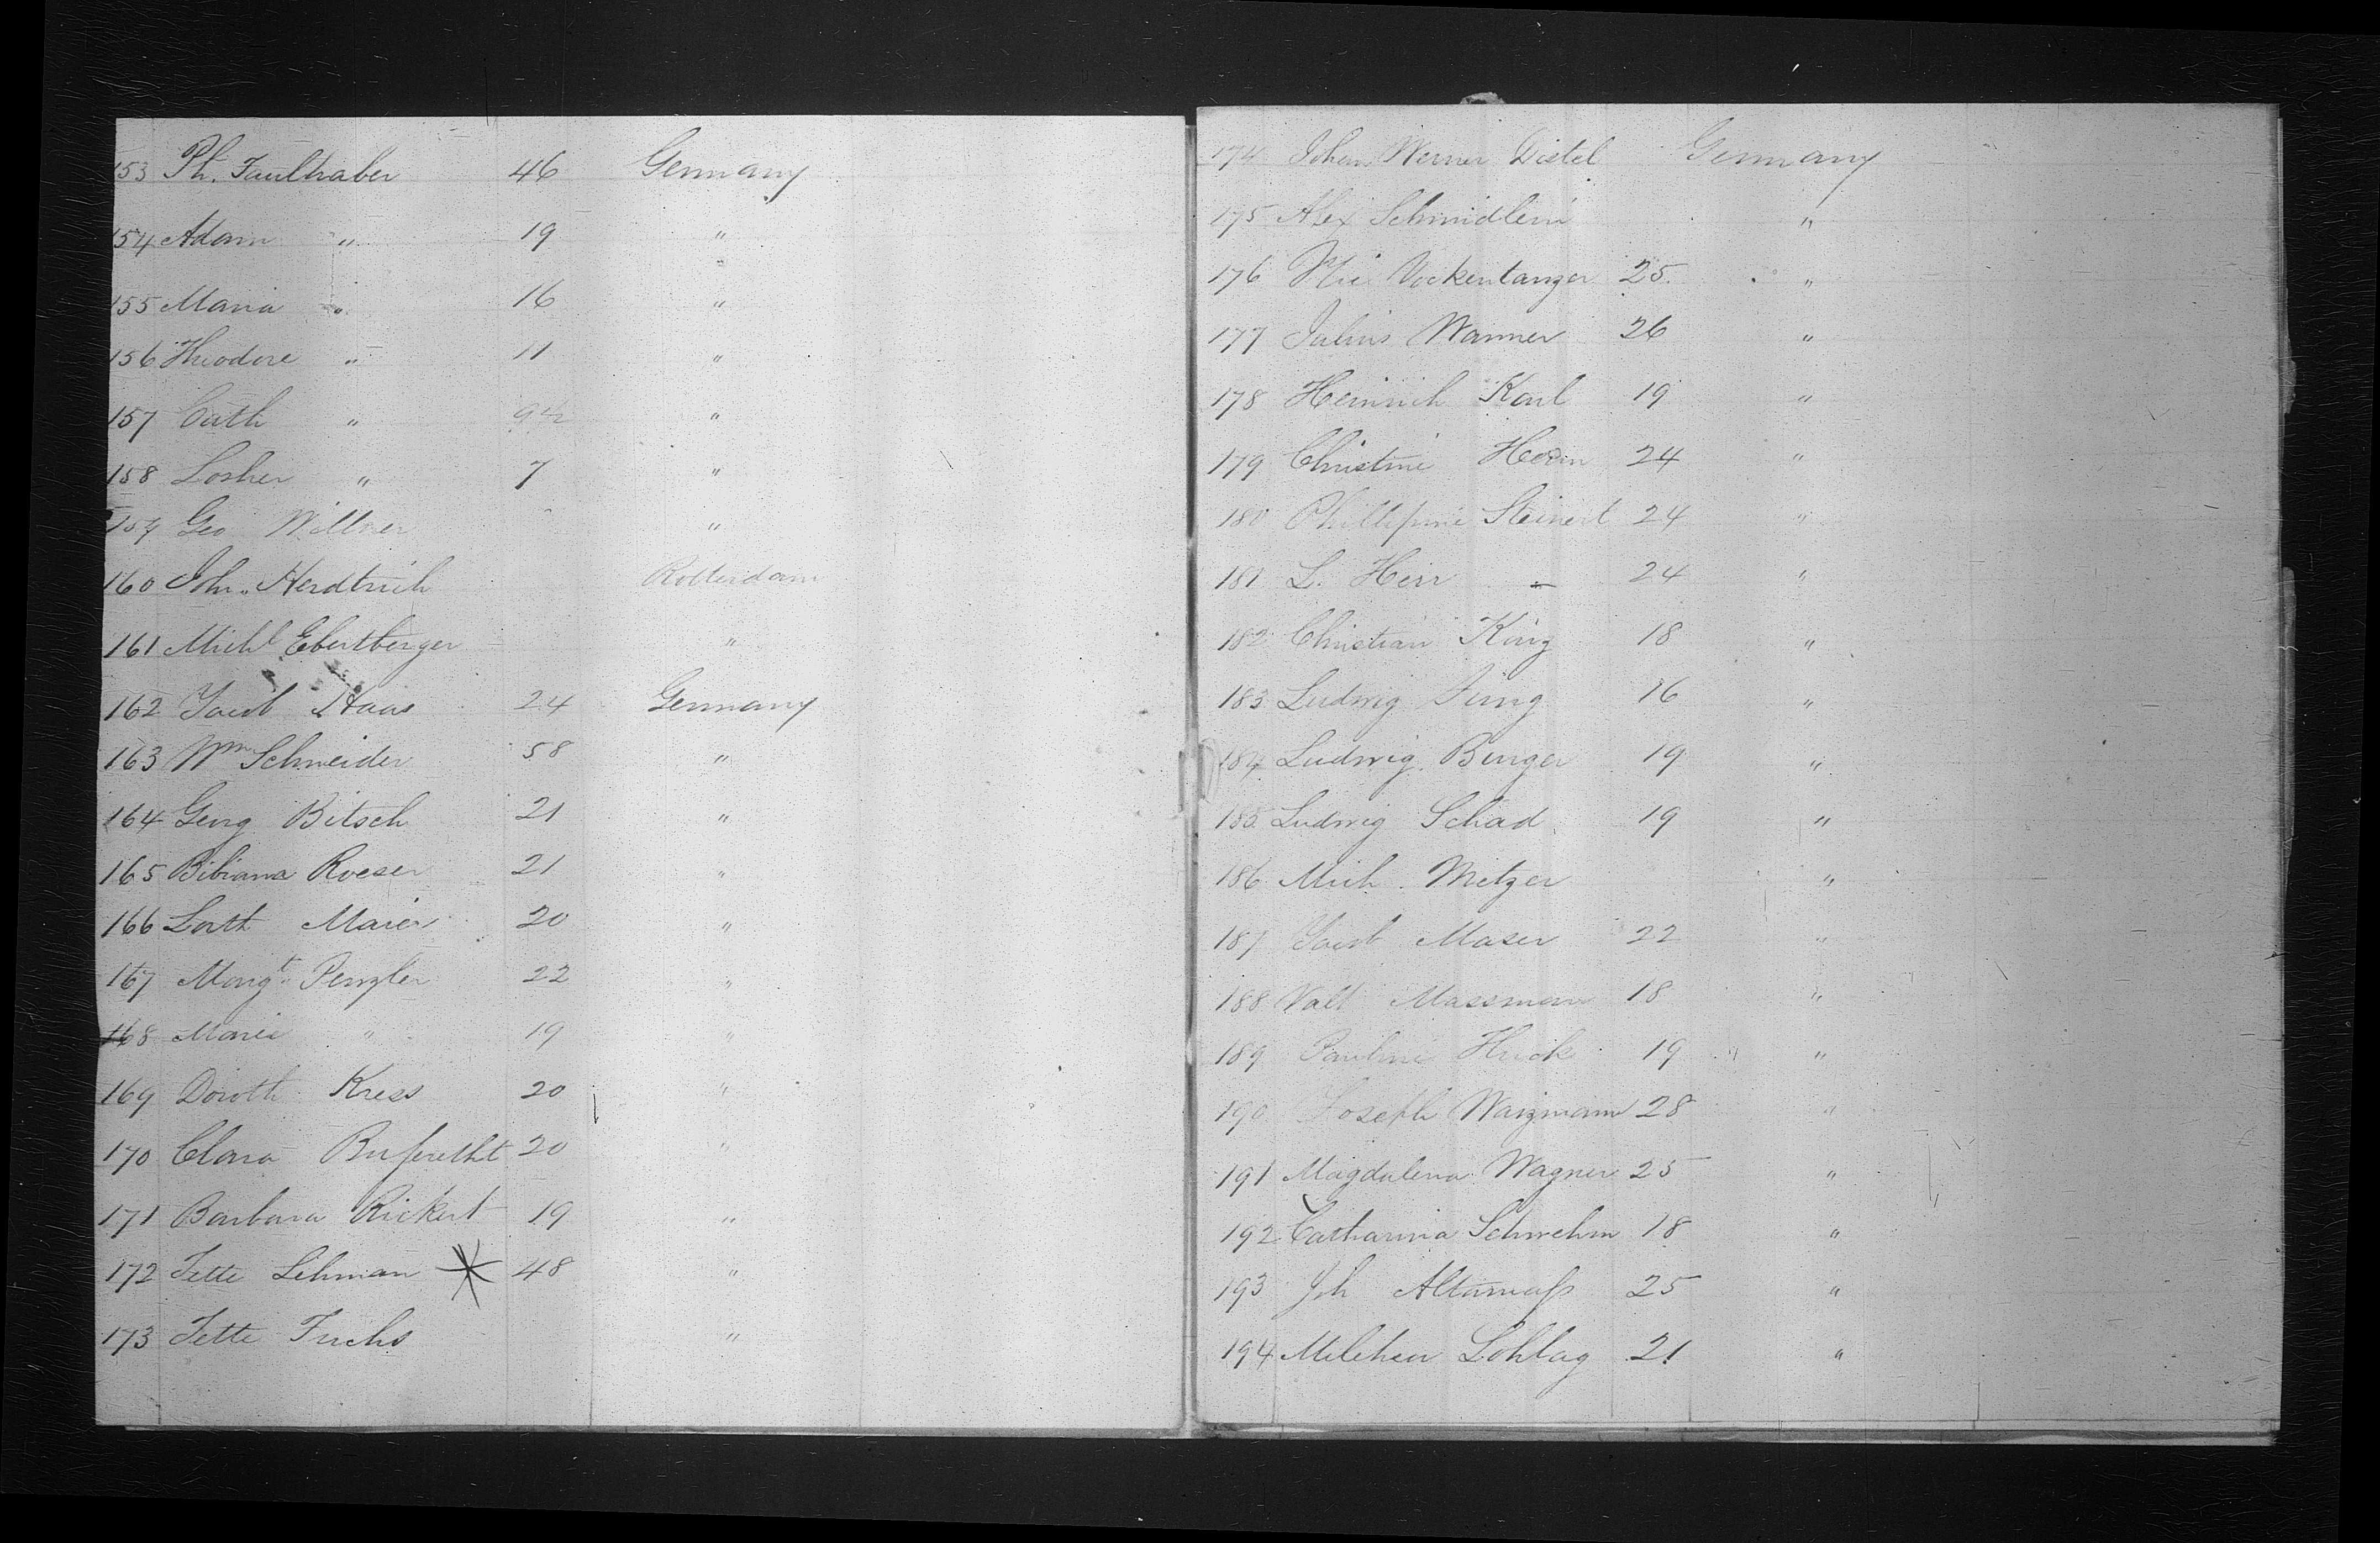 153 Ph. Faulhaber 46 Germany
154 Adam " 19 "
155 Maria " 16 "
156 Theodore " 11 "
157 Cath " 9½ "
158 Losher " 7 "
159 Geo Willner "
160 Joh. Herdtrich Rotterdam
161 Michl Ebertberger "
162 Jacob Haas 24 Germany
163 Wm Schneider 58 "
164 Georg Bitsch 21 "
165 Bibiana Roeser 21 "
166 Maier 20 "
167 Margt Penzler 22 "
168 Maria " 19 "
169 Doroth Kress 20 "
170 Clara Ruprecht 20 "
171 Barbara Rickert 19 "
172 Jette Lehman 48 "
173 Jette Fuchs "
174 Johan Werner Distel Germany
175 Alex Schmidlein "
176 Nic Vockentanzer 25 "
177 Julius Wanner 26 "
178 Heinrich Karl 19 "
179 Christine 24 "
180 Phillipine Steinert 24 "
181 L. Herr 24 "
182 Christian König 18 "
183 Ludwig Jung 16 "
184 Ludwig Burger 19 "
185 Ludwig Schad 19 "
186 Mich. Metzer "
187 Jacob Maser 22 "
188 Valt Massman 18 "
189 Pauline Huck 19 "
190 Joseph Waizmann 28 "
191 Magdalena Wagner 25 "
192 Catharina Schwehm 18 "
193 Joh 25 "
194 Lohlag 21 "